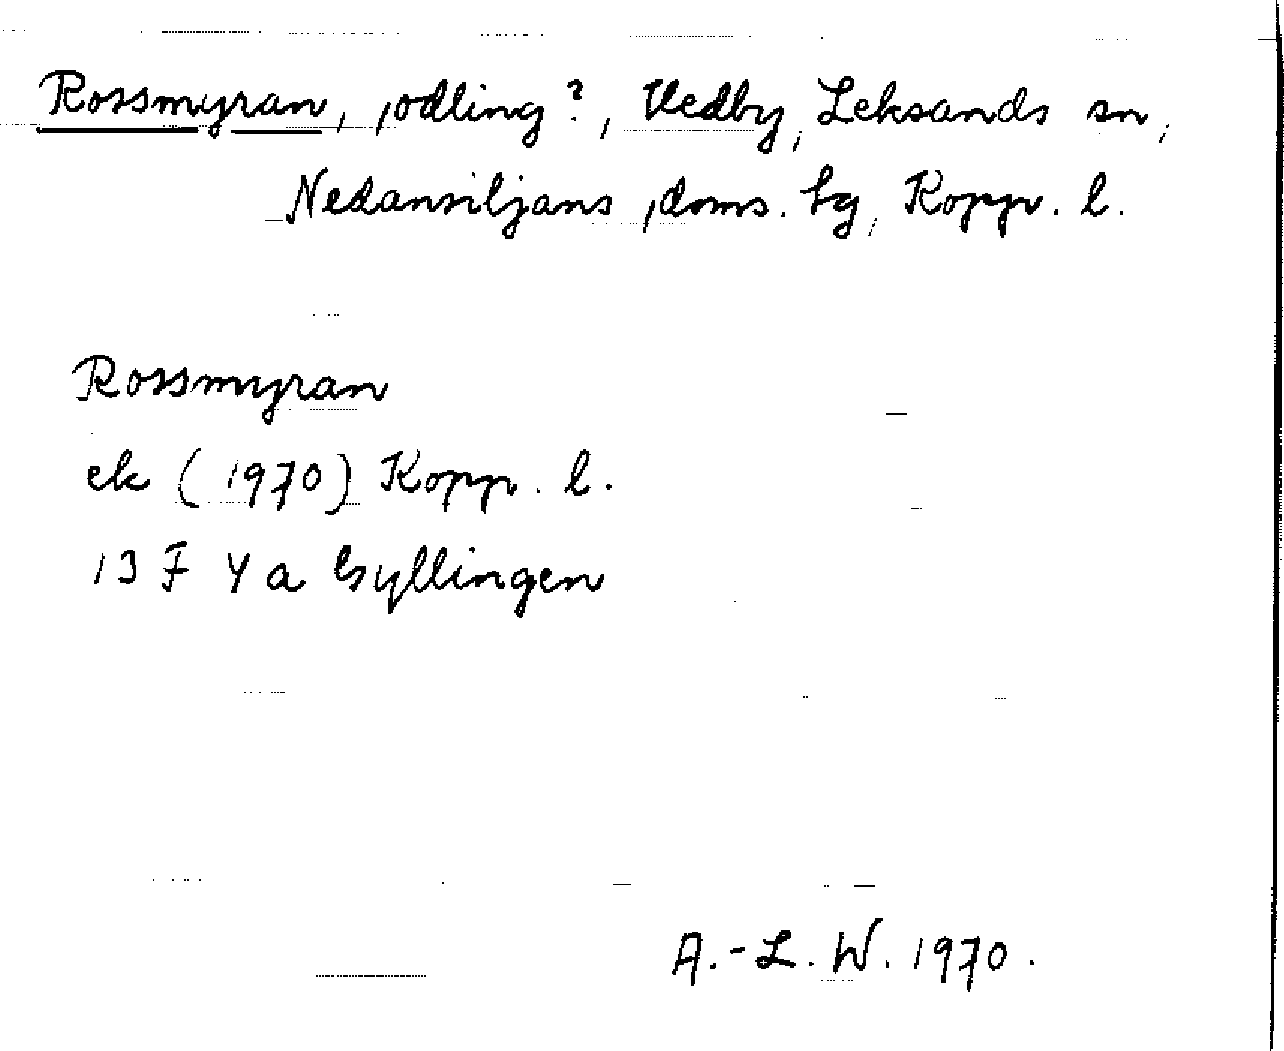 Rossmyran, odling?, Vedby, Leksands sn,
Nedansiljans doms. hg, Kopp. l.
Rossmyran
ek (1970) Kopp. l.
13 F 4 a Gyllingen
A.-L. W. 1970.